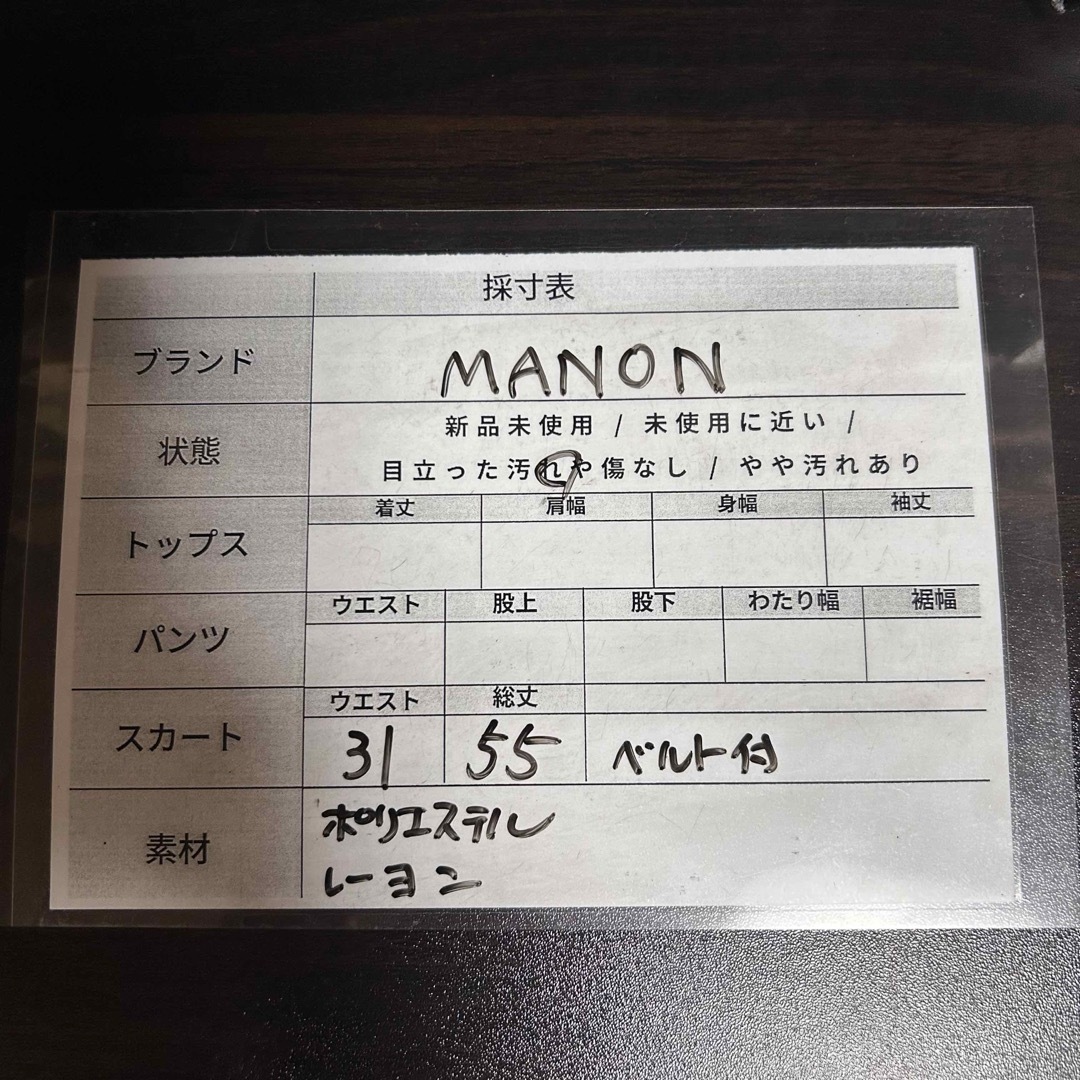 採寸表
ブランド MANON
状態 新品未使用 / 未使用に近い /
目立った汚れや傷なし / やや汚れあり
トップス 着丈 肩幅 身幅 袖丈
パンツ ウエスト 股上 股下 わたり幅 裾幅
スカート ウエスト 総丈
31 55 ベルト付
素材 ポリエステル
レーヨン